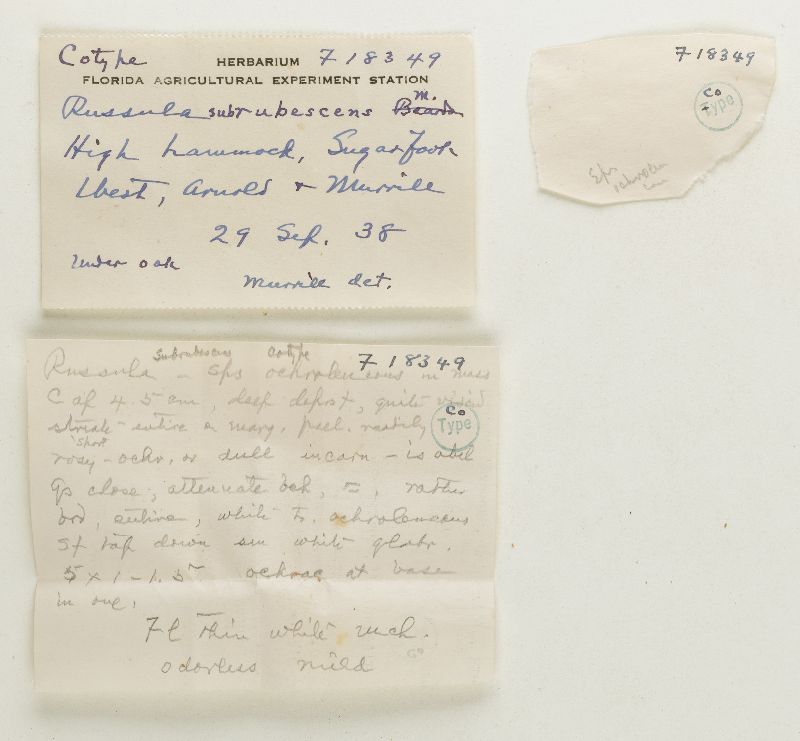 Cotype HERBARIUM F18349
FLORIDA AGRICULTURAL EXPERIMENT STATION
Russula subrubescens M.
High hammock, Sugarfoot
West, Arnold & Murrill
29 Sep. 38
Under oak
Murrill det.
F18349
Co
Type
Sps
F18349
subrubescens cotype
Russula - sps ochroleucous in mass
C ap 4.5 cm, deep deprst, quite viscid
Co
Type
striate entire on marg, peel. readily
short
rosy-ochr, or dull incarn - isabel
Gs close, attenuate beh, =, rather
brd, entire, white to ochroleucous
St tap down sm white glabr.
5 x 1-1.5 ochrac at base
in one.
Fl thin white unch.
odorless mild